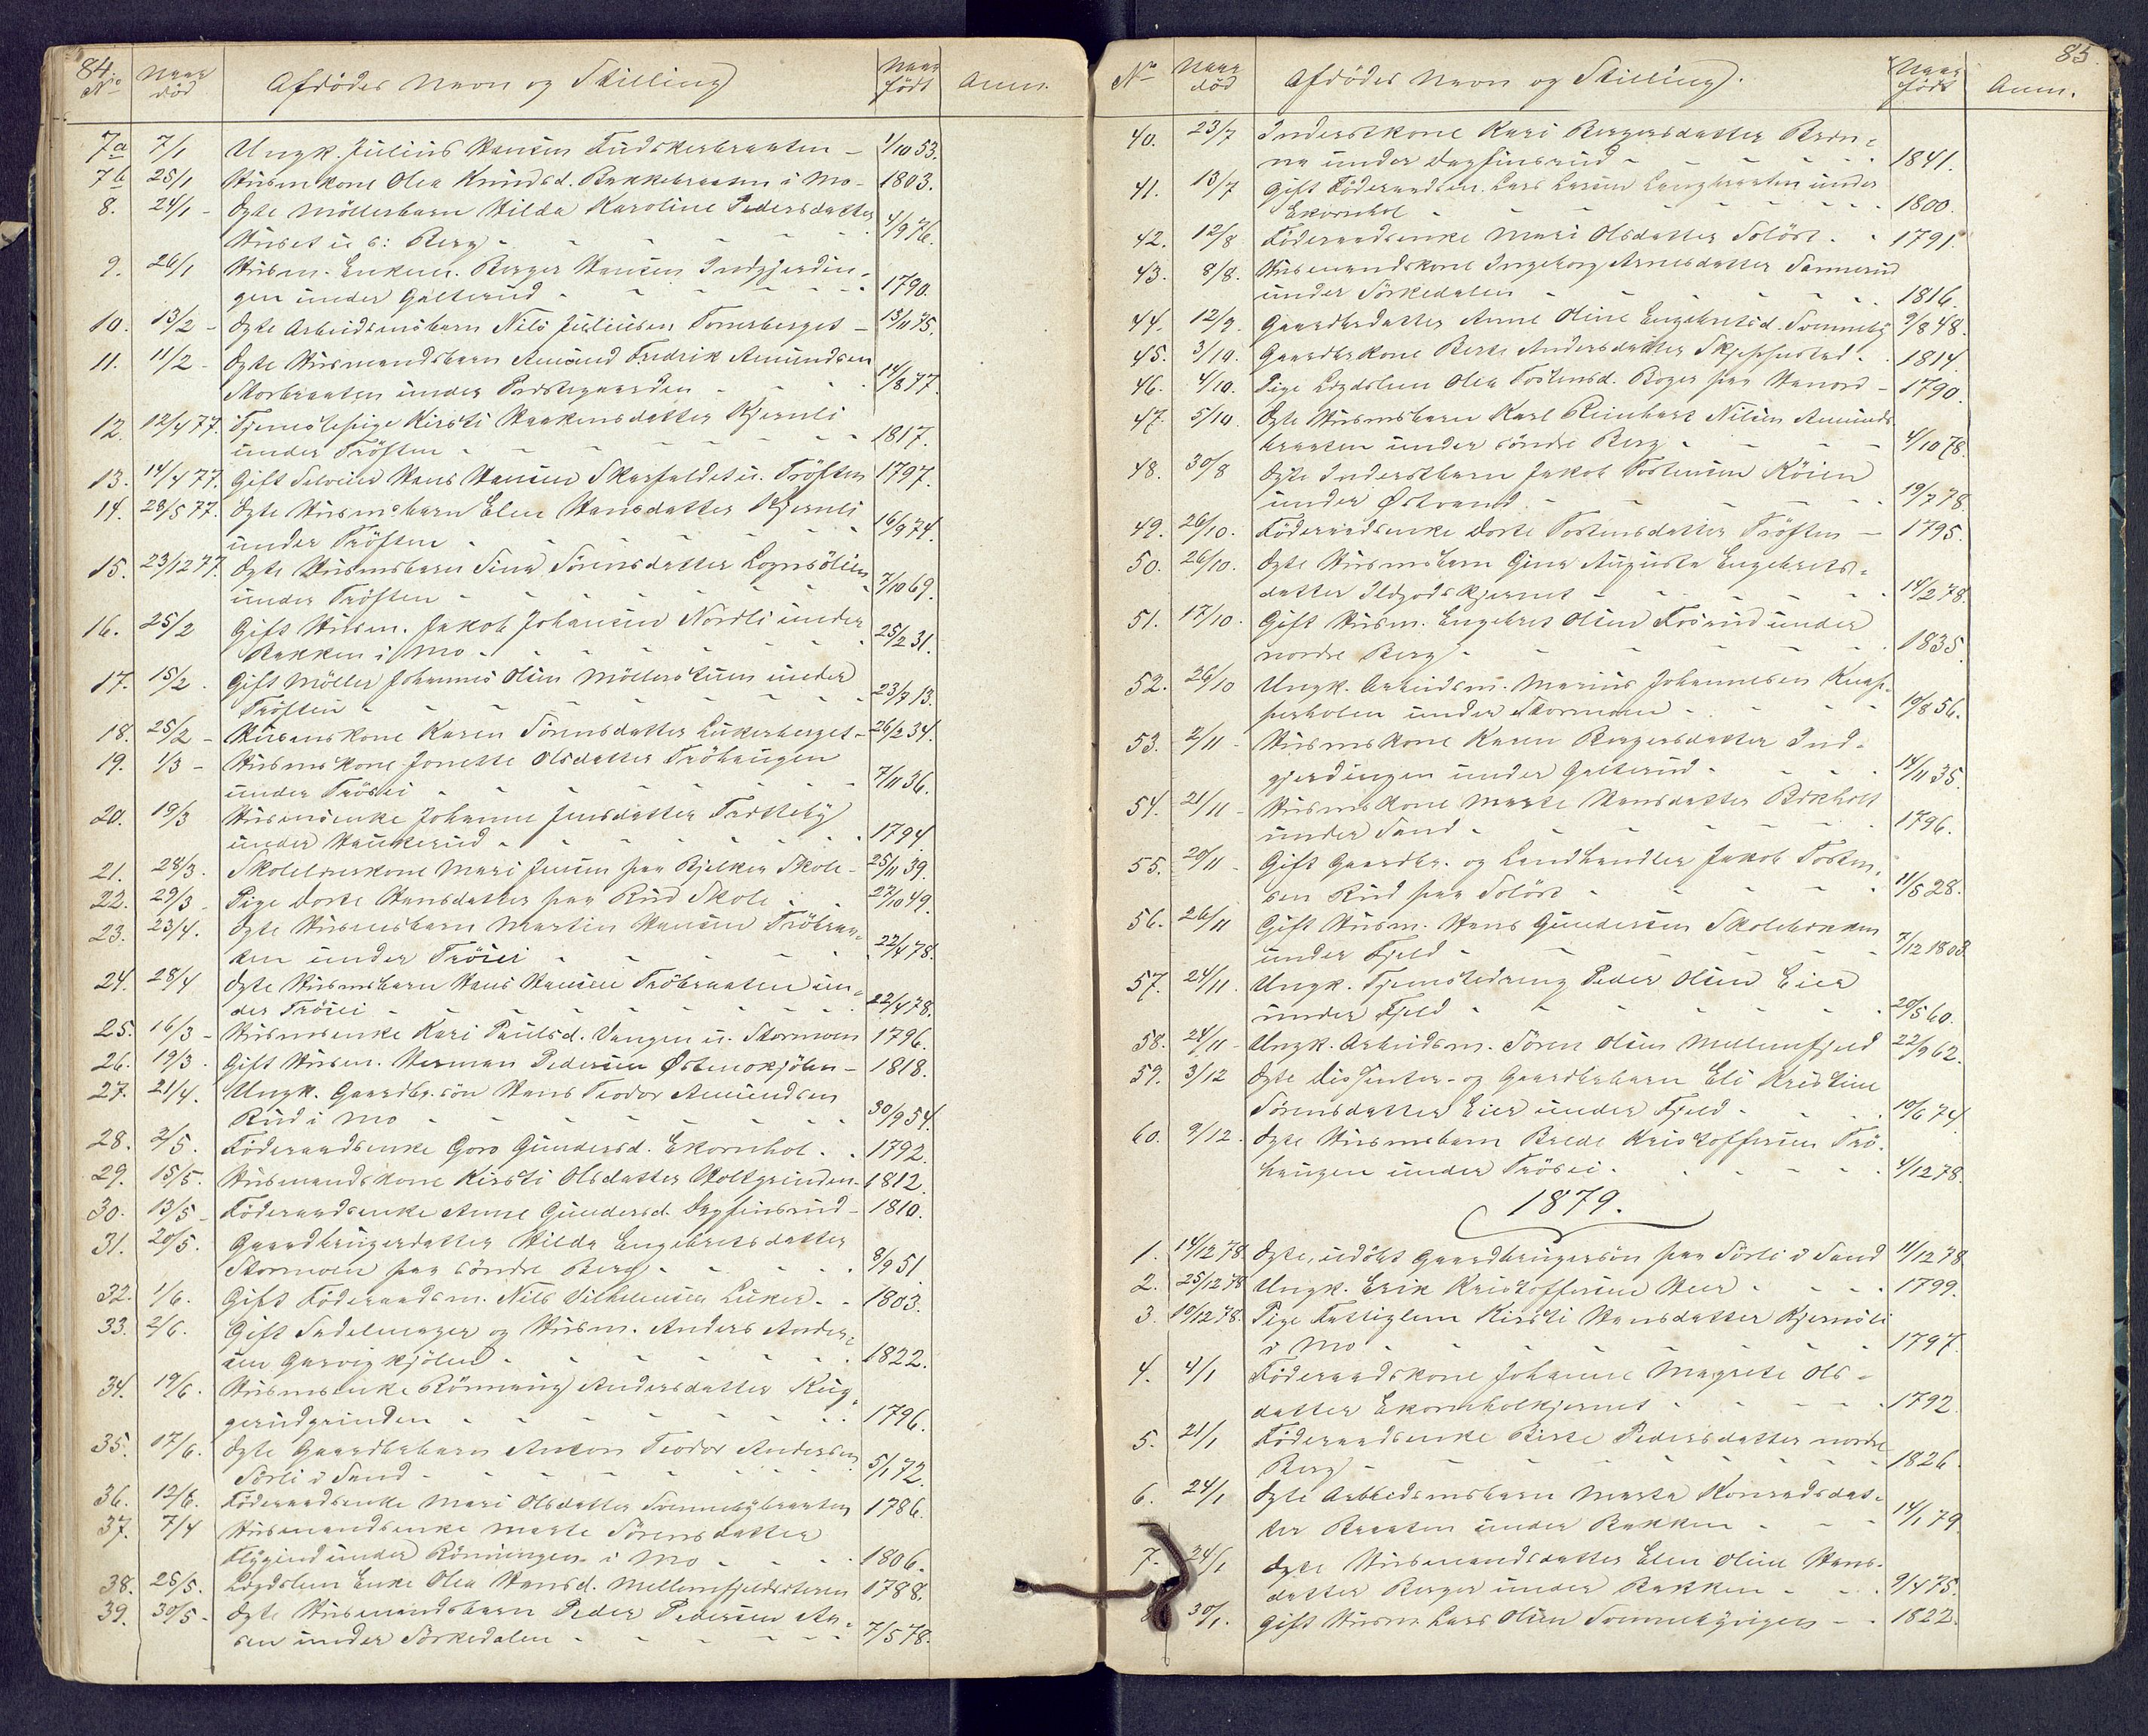 84.
No Naar död Afdödes Navn og Stilling Naar födt Anm.
7a 7/1 Ungk. Julius Hansen Fudskerbraaten - 1/10 53.
7b 25/1 Husmkone Olea Knudsd. Bakkebraaten i Mo - 1803.
8. 24/1 - Ægte Möllerbarn Hilda Karoline Pedersdatter
Huset u. s: Berg - 4/9 76.
9. 26/1 Husm. Enkem. Borger Hansen Indgjerdin-
gen under Galterud - 1790.
10. 13/2 - Ægte Arbeidsmsbarn Nils Juliusen Tomsberget - 13/11 75.
11. 11/2 - Ægte Husmandsbarn Amund Fredrik Amundsen
Morbraaten under Prestegaarden - 14/8 77.
12. 12/4 77. Tjenestepige Kirsti Haakensdatter Kjernli
under Tröften - 1817.
13. 14/4 77. Gift Selveier Hans Hansen Skarfaldet u. Tröften 1797.
14. 28/5 77. Ægte Husmsbarn Elen Hansdatter Kjernli
under Tröften - 16/9 74.
15. 23/12 77. Ægte Husmsbarn Sina Sörensdatter
under Tröften - 7/10 69.
16. 25/2 Gift Husm. Jakob Johansen Nordli under
Bakken i Mo - 25/2 31.
17. 15/2. Gift Möller Johannes Olsen Möllerstuen under
Tröften - 23/7 13.
18. 25/2 - Husmskone Karen Sörensdatter Lukerberget - 26/2 34.
19. 1/3 - Husmskone Jonette Olsdatter Tröhaugen
under Trösei - 7/11 36.
20. 19/3 Husmsenke Johanne Jensdatter Fætteby
under Haukerud - 1794
21. 28/3. Skolelærerkone Mari Jensen paa Bjelker Skole - 25/11 39.
22. 29/3 Pige Dorte Hansdatter paa Rud Skole - 27/10 49.
23. 23/4. Ægte Husmsbarn Martin Hansen Tröbraa-
ten under Trösei - 22/4 78.
24. 28/4 Ægte Husmsbarn Hans Hansen Tröbraaten un-
der Trösei - 22/4 78.
25. 16/3 - Husmsenke Kari Paulsd. Vangen u. Stormoen 1796.
26. 19/3. Gift Husm. Herman Pedersen Østmokjölen - 1818.
27. 21/4. Ungk. Gaardbr.sön Hans Teodor Amundsen
Rud i Mo - 30/9 54.
28. 2/5. Föderaadsenke Goro Gundersd. Ekornhol - 1792.
29. 15/5. Husmandskone Kirsti Olsdatter Holtgrinden - 1812.
30. 13/5 - Föderaadsenke Anne Gundersd. Dagfinsrud - 1810.
31. 20/5. Gaardbrugerdatter Hilda Engebretsdatter
Stormoen paa söndre Berg - 8/9 51
32. 1/6. Gift Föderaadsm. Nils Vilhelmsen Luker - 1803.
33. 2/6. Gift Sadelmager og Husm. Anders Ander-
sen Garvigkjölen - 1822.
34. 19/6. Husmsenke Rönnaug Andersdatter Rug-
gerudgrinden - 1796.
35. 17/6. Ægte Gaardbrbarn Anton Teodor Andersen
Sörli v Sand - 5/1 72.
36. 12/6. Föderaadsenke Mari Olsdatter Sommebybraaten 1786.
37. 7/4 Husmandsenke Marte Sörensdatter
Flygind under Rönningen i Mo - 1806.
38. 25/5. Lægdslem Enke Olea Hansd. Mellemfjeldsteren 1788.
39. 30/5 - Ægte Husmandsbarn Peder Pedersen Aa-
sen under Sörkedalen - 7/5 78.
85.
No Naar död Afdödes Navn og Stilling. Naar födt Anm.
40. 23/7 Inderstkone Kari Borgersdatter Bræn-
na under Dagfinsrud - 1841.
41. 13/7 Gift Föderaadsm. Lars Larsen Langbraaten under
Ekornhol - 1800.
42. 12/8 Föderaadsenke Mari Olsdatter Solöst - 1791.
43. 8/8. Husmandskone Ingeborg Arnesdatter Sannerud
under Sörkedalen - 1816.
44. 12/9. Gaardbrdatter Anne Oline Engebretsd. Sommeby 9/8 48.
45. 3/10. Gaardbrkone Berte Andersdatter Skjefstad - 1814.
46. 4/10. Pige Lægdslem Olea Tostensd. Boger paa Hanord - 1790.
47. 5/10. Ægte Husmsbarn Karl Reinhart Nilsen Amunds-
braaten under söndre Berg - 4/10 78.
48. 30/8 Ægte Inderstbarn Jakob Tostensen Köien
under Østvand - 19/7 78.
49. 26/10. Föderaadsenke Dorte Tostensdatter Tröften - 1795.
50. 26/10. Ægte Husmsbarn Gina Augusta Engebrets-
datter Ildgodskjernet - 14/2 78.
51. 17/10. Gift Husm. Engebret Olsen Fosrud under
nordre Berg - 1835.
52. 26/10 Ungk. Arbeidsm. Marius Johannesen Knap-
perholen under Stormoen - 19/8 56.
53. 2/11 - Husmskone Karen Borgersdatter Ind-
gjerdingen under Galterud - 14/11 35.
54. 21/11 - Husmskone Marte Hansdatter Bækholt
under Sand - 1796.
55. 20/11 - Gift Gaardbr. og Landhandler Jakob Tosten-
sen Rud paa Solöst - 11/5 28.
56. 26/11 Gift Husm. Hans Gundersen Skolebakken
under Fjeld - 7/12 1803.
57. 24/11. Ungk. Tjenestedreng Peder Olsen Eier
under Fjeld - 20/5 60.
58. 24/11 - Ungk. Arbeidsm. Sören Olsen Mellemfjeld 22/9 62.
59. 3/12 Ægte Dissenter- og Gaardbrbarn Eli Kristine
Sörensdatter Eier under Fjeld - 10/6 74.
60. 9/12. Ægte Husmsbarn Brede Kristoffersen Trö-
haugen under Trösei - 4/12 78.
1879.
1. 14/12 78. Ægte, udöbt Gaardbrugersön paa Sörli v Sand 11/12 78
2. 25/12 78 Ungk. Erik Kristoffersen Heer - 1799.
3. 19/12 78. Pige Fattiglem Kirsti Hansdatter Kjernsli
v Mo - 1797.
4. 4/1 Föderaadskone Johanne Magrete Ols-
datter Ekornholkjernet - 1792.
5. 21/1 Föderaadsenke Berte Pedersdatter nordre
Berg - 1826.
6. 24/1 Ægte Arbeidsmsbarn Marta Konradsdat-
ter Braaten under Bakken - 14/1 79
7. 24/1 Ægte Husmandsdatter Elen Oline Hans-
datter Berger under Bakken - 9/4 75.
30/1. Gift Husm. Lars Olsen Sommebyvigen - 1822.